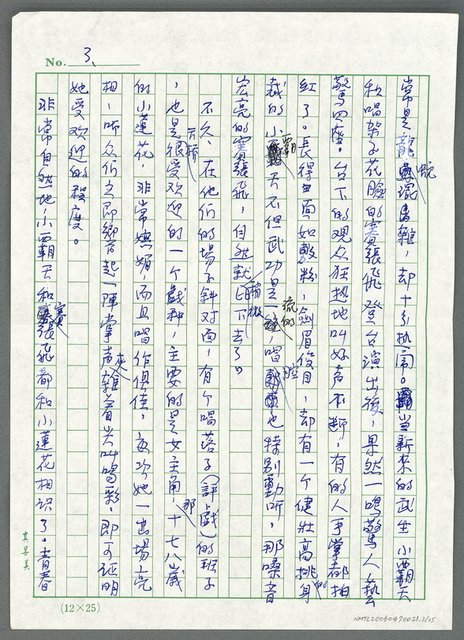 No. 3、
常是龍蛇混雜，却十分熱鬧。當新來的武生小霸天
和唱架子花臉的賽張飛登台演出後，果然一鳴驚人，藝
驚四座。台下的观众狂热地叫好声不断，有的人手掌都拍
紅了。長得面如敷粉，劍眉俊目，却有一个健壯高挑身
裁的小霸天不但武功是一流的，唱腔也特別動听，那嗓音
宏亮的賽張飛，自然就被比下去了。
不久，在他们的場子斜对面，有个唱落子（評戲）的班子
，也是很受欢迎的一个戲种，主要的是女主角，那十七八歲
的小蓮花，非常嫵媚，而且唱作俱佳，每次她一出場亮
相，听众们立即響起一陣掌声，夾雜着尖叫喝彩，即可证明
她受欢迎的程度。
非常自然地，小霸天和賽張飛都和小蓮花相识了。青春
(12×25)
NMTL20060470023.3/25